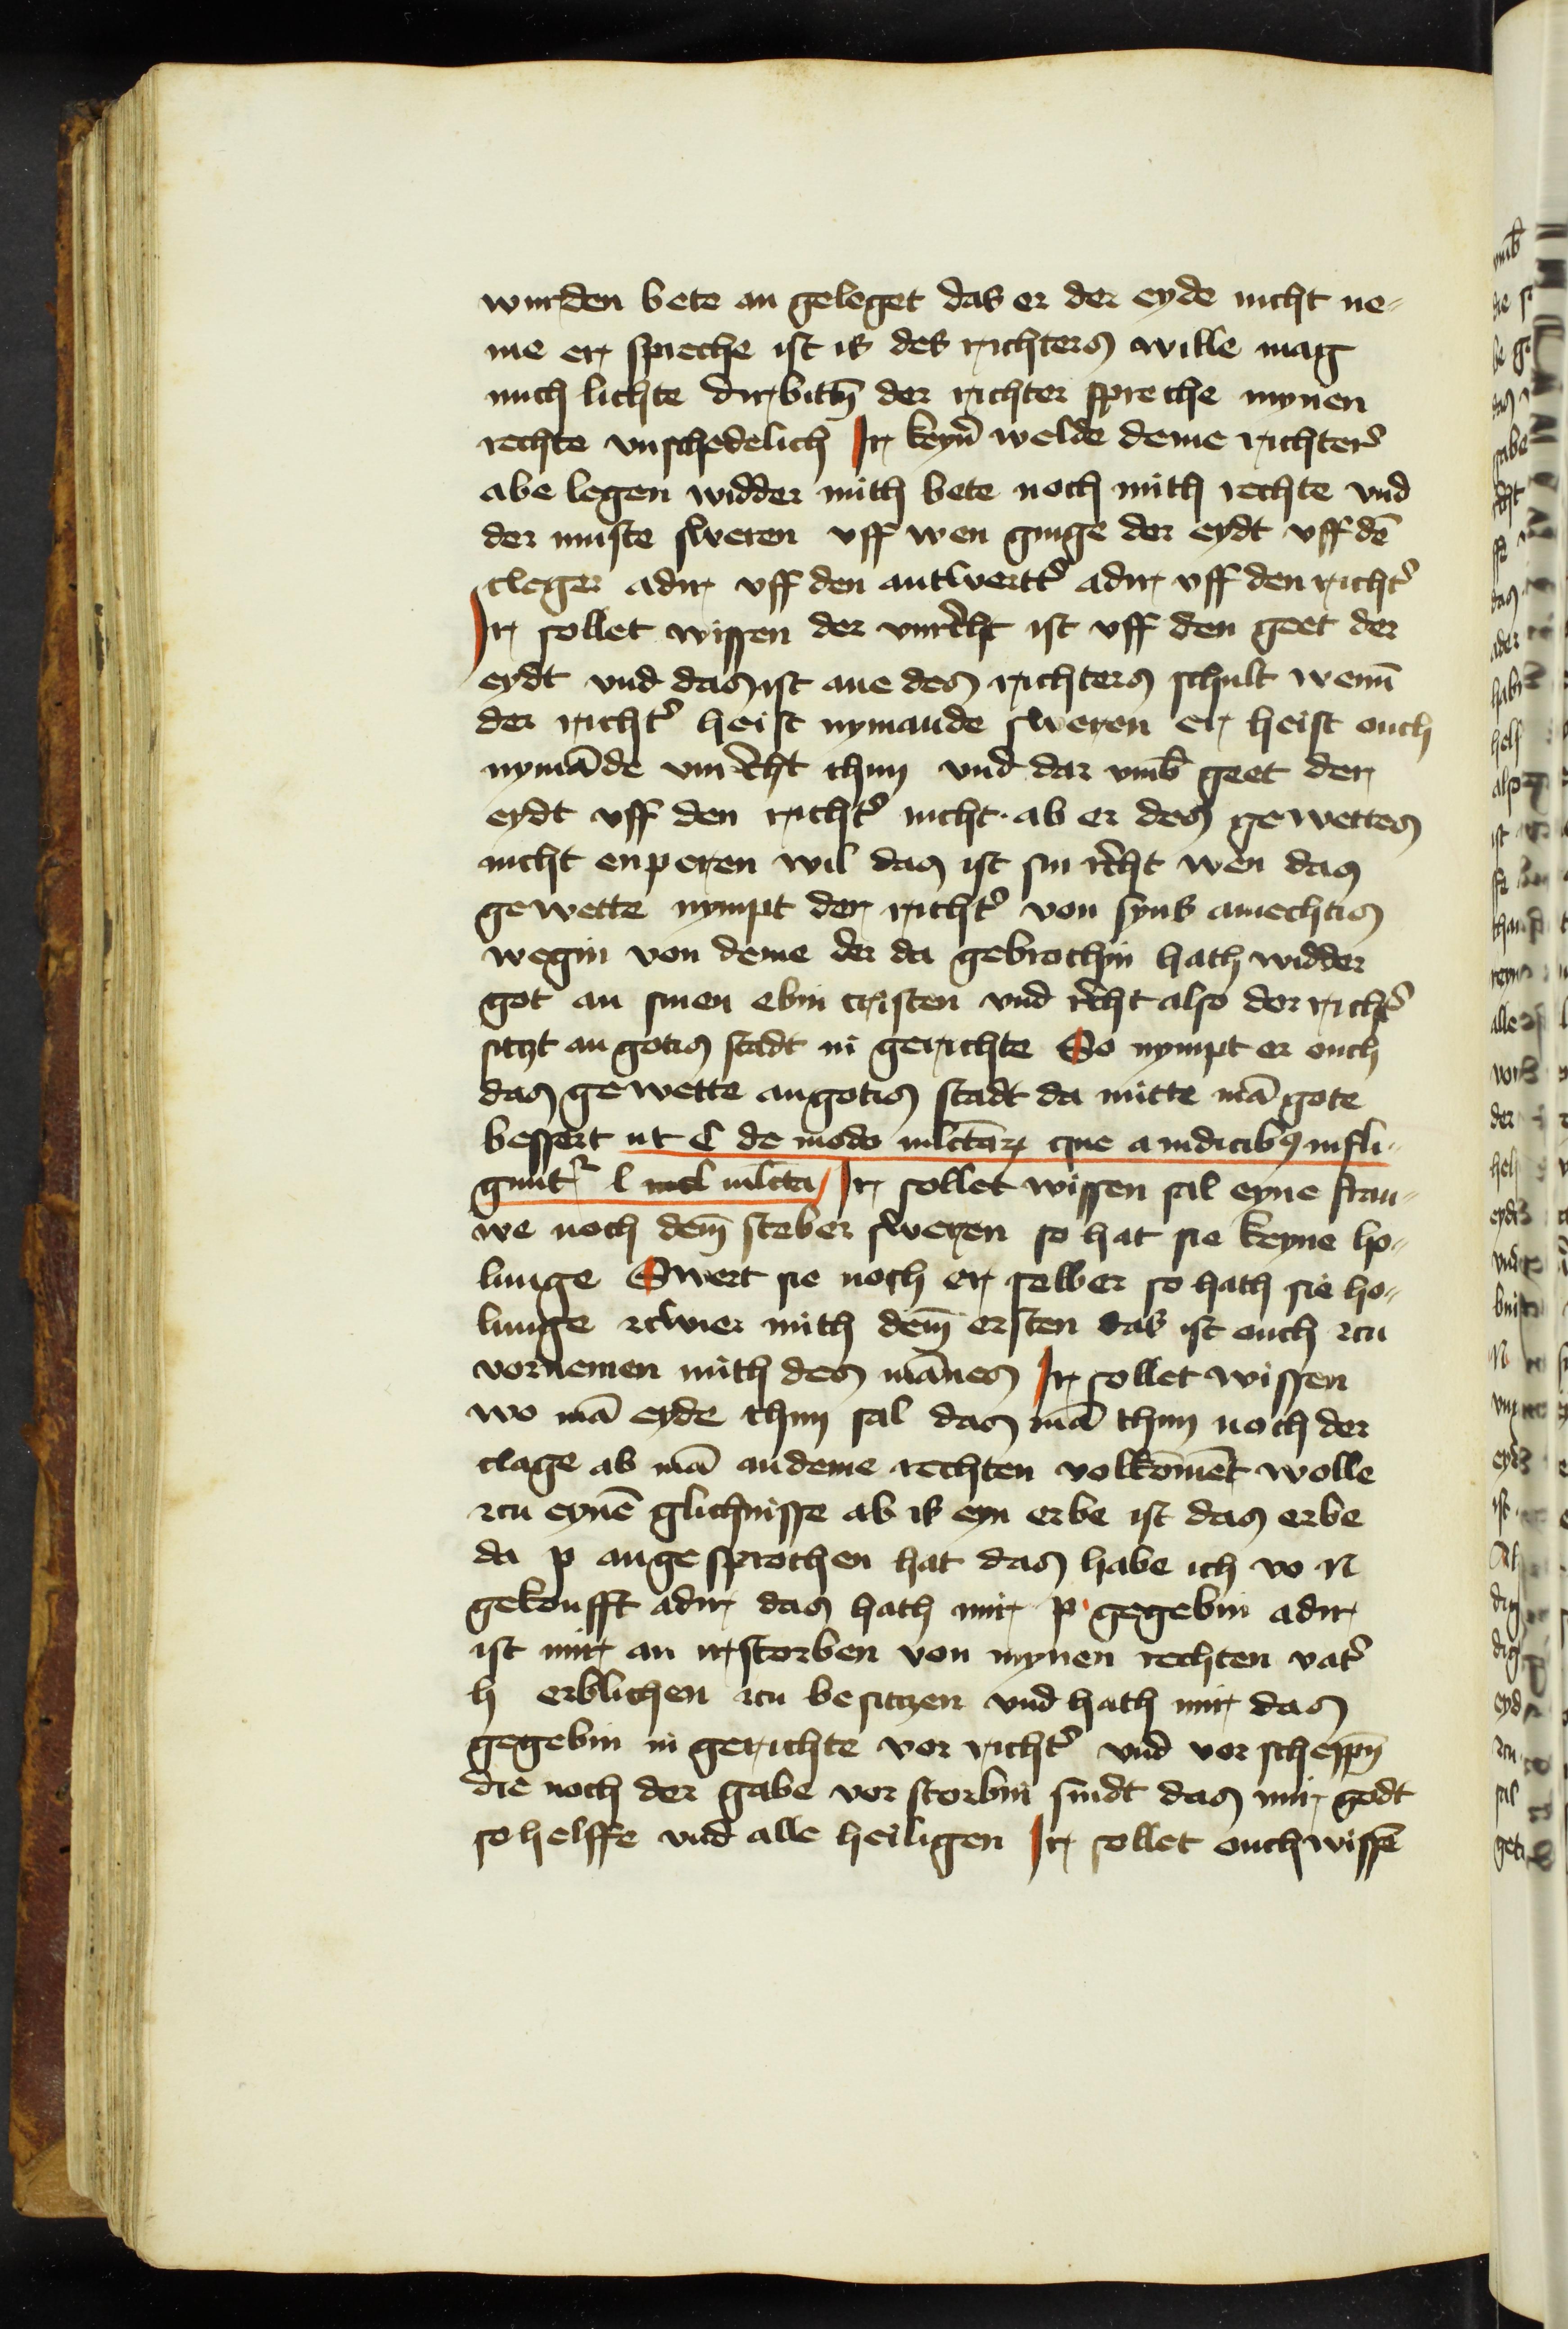 wurden bete an geleget das er der eyde nicht ne-
me er spreche ist is des richters wille mag
mich lichte dirbitn̄ der richter spreche mynen
rechte vnschedelich Ir keyn̄ welde deme richter᷑
abe legen widder mith bete noch mith rechte vnd
der muste sweren vff wen ginge der eydt vff dē
cleger adir vff den antwertt᷑ adir vff den richt᷑
Ir sollet wissen der vnrec̄ht ist vff den geet der
eydt vnd das ist ane des richters schult wenn̄
der richt᷑ heist nymande sweren er heist ouch
nymāde vnrec̄ht thun vnd dar vmb̄ geet der
eydt vff den richt᷑ nicht · ab er des gewettes
nicht enperen wil das ist sin rec̄ht wen das
gewette nympt der richt᷑ von syns amechtis
wegin von deme der da gebrochin hath widder
got an sinen ebin cristen vnd rec̄ht also der richt᷑
sitzt an gotis stadt in gerichte So nympt er ouch
das gewette an gotis stadt da mitte mā gote
bessert ut C de modo mlctar̄ que a iudicibꝰ infli-
gunt᷑ l mlcta Ir sollet wissen sal eyne frau-
we noch dem̄ steber sweren so hat sie keyne ho-
lunge Swert sie noch er selber so hath sie ho-
lunge zcwier mith dem̄ ersten das ist ouch zcu
vornemen mith des mānes Ir sollet wissen
wo mā eyde thun sal das mā thun noch der
clage ab mā an deme rechten volkōmēt wolle
zcu eynē glichnisse ab is eyn erbe ist das erbe
da p angesprochen hat das habe ich vo N
gekoufft adir das hath mir p gegebin adir
ist mir an irstorben von mynen rechten vat᷑
h erblichen zcu besitzen vnd hath mir das
gegebin in gerichte vor richt᷑ vnd vor scheppn̄
die noch der gabe vor storbin sindt das mir godt
so helffe vnd alle heiligen Ir sollet ouch wissē